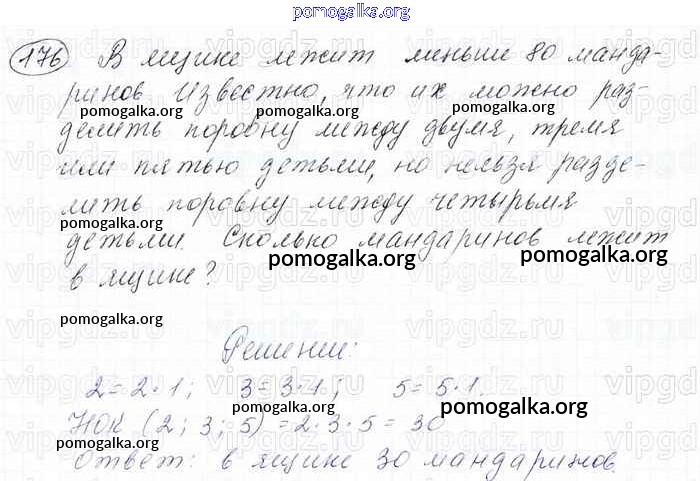 pomogalka.org
176 В ящике лежит меньше 80 манда-
ринов Известно, что их можно раз-
pomogalka.org pomogalka.org
делить поровну между двумя, тремя
или пятью детьми, но нельзя разде-
лить поровну между четырьмя
pomogalka.org
детьми. Сколько мандаринов лежит
pomogalka.org
в ящике?
pomogalka.org
Решение:
2=2·1; 3=3·1; 5=5·1.
pomogalka.org pomogalka.org
НОК (2; 3; 5) = 2·3·5 = 30
pomogalka.org
Ответ: в ящике 30 мандаринов.